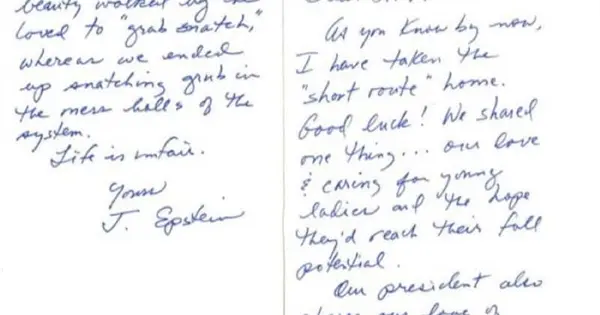 beauty walked by he
loved to "grab snatch,"
whereas we ended
up snatching grub in
the mess halls of the
system.
Life is unfair.
Yours
J. Epstein
As you know by now,
I have taken the
"short route" home.
Good luck! We shared
one thing... our love
& caring for young
ladies and the hope
they'd reach their full
potential.
Our president also
shares our love of